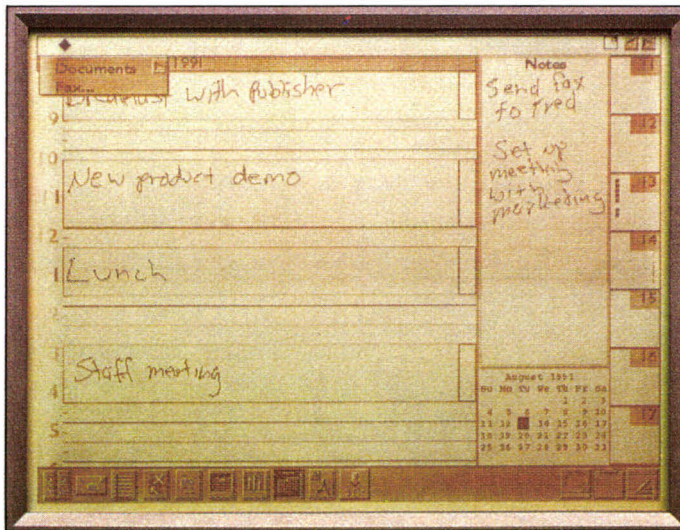 Documents
Fax...
1991
with Publisher
9
10
New product demo
11
12
Lunch
1
Staff meeting
4
5
Notes
Send fax
to Fred
Set up
meeting
with
marketing
August 1991
Su Mo Tu We Th Fr Sa
1 2 3
4 5 6 7 8 9 10
11 12 14 15 16 17
18 19 20 21 22 23 24
25 26 27 28 29 30
11
12
13
14
15
16
17